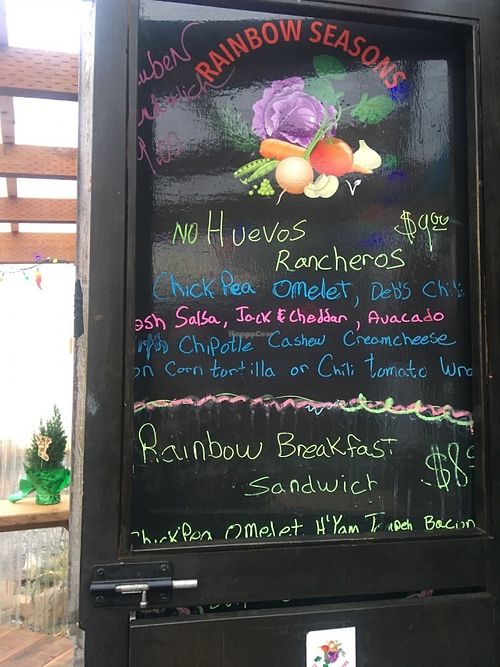 RAINBOW SEASONS
NO Huevos $9.00
Rancheros
Chick Pea Omelet, Deb's Chili
Salsa, Jack & Cheddar, Avacado
HappyCow
Chipotle Cashew Creamcheese
on Corn tortilla or Chili tomato
Rainbow Breakfast
Sandwich
Chick Pea Omelet H'Yam Tempeh Bacon